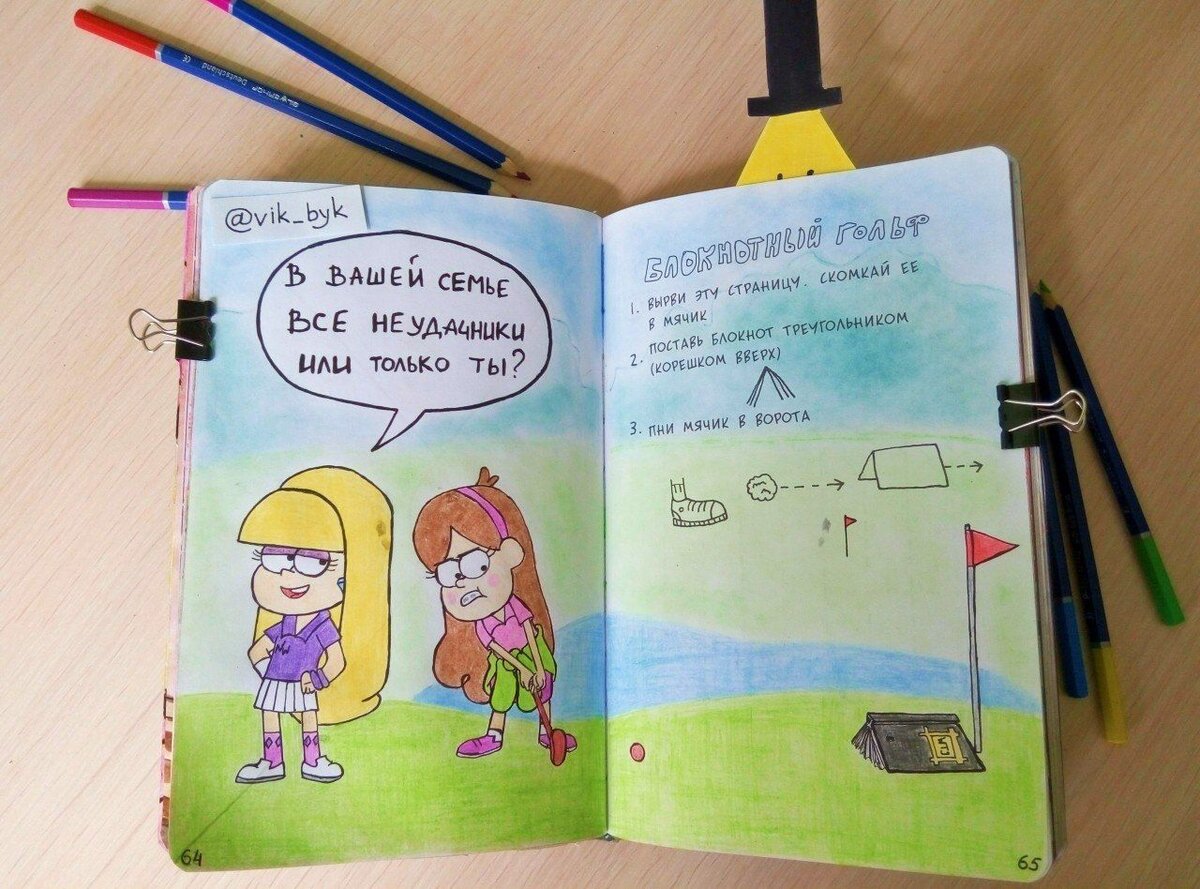 @vik_byk
В ВАШЕЙ СЕМЬЕ
ВСЕ НЕУДАЧНИКИ
ИЛИ ТОЛЬКО ТЫ?
64
БЛОКНОТНЫЙ ГОЛЬФ
1. ВЫРВИ ЭТУ СТРАНИЦУ. СКОМКАЙ ЕЕ
В МЯЧИК
2. ПОСТАВЬ БЛОКНОТ ТРЕУГОЛЬНИКОМ
(КОРЕШКОМ ВВЕРХ)
3. ПНИ МЯЧИК В ВОРОТА
65
Deutschland